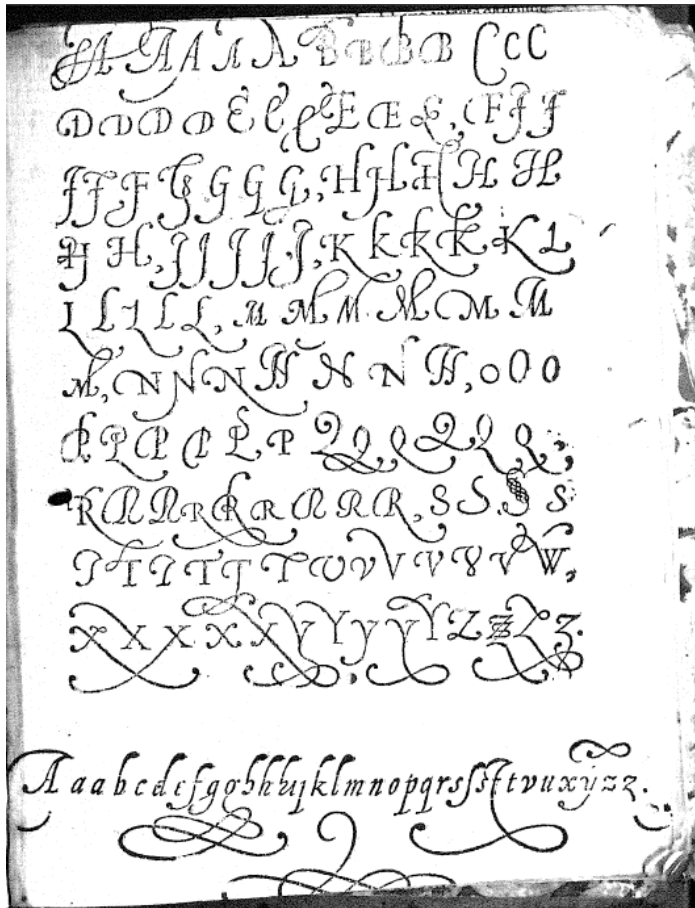 A A A A A B B B B C C C
D D D D E E E E E E, F F F
F F F G G G G, H H H H H
H H, J J J J J, K K K K K L
L L L L L, M M M M M M
M, N N N N N N, O O O
P P P P P, P Q Q Q Q Q Q,
R R R R R R R R R, S S S S
T T T T T T V V V V V V W,
X X X X X Y Y Y Y Y Z Z Z Z.
A a a b c d e f g g h h h ij k l m n o p q r s ſ ß ſt t v u x ÿ z z.